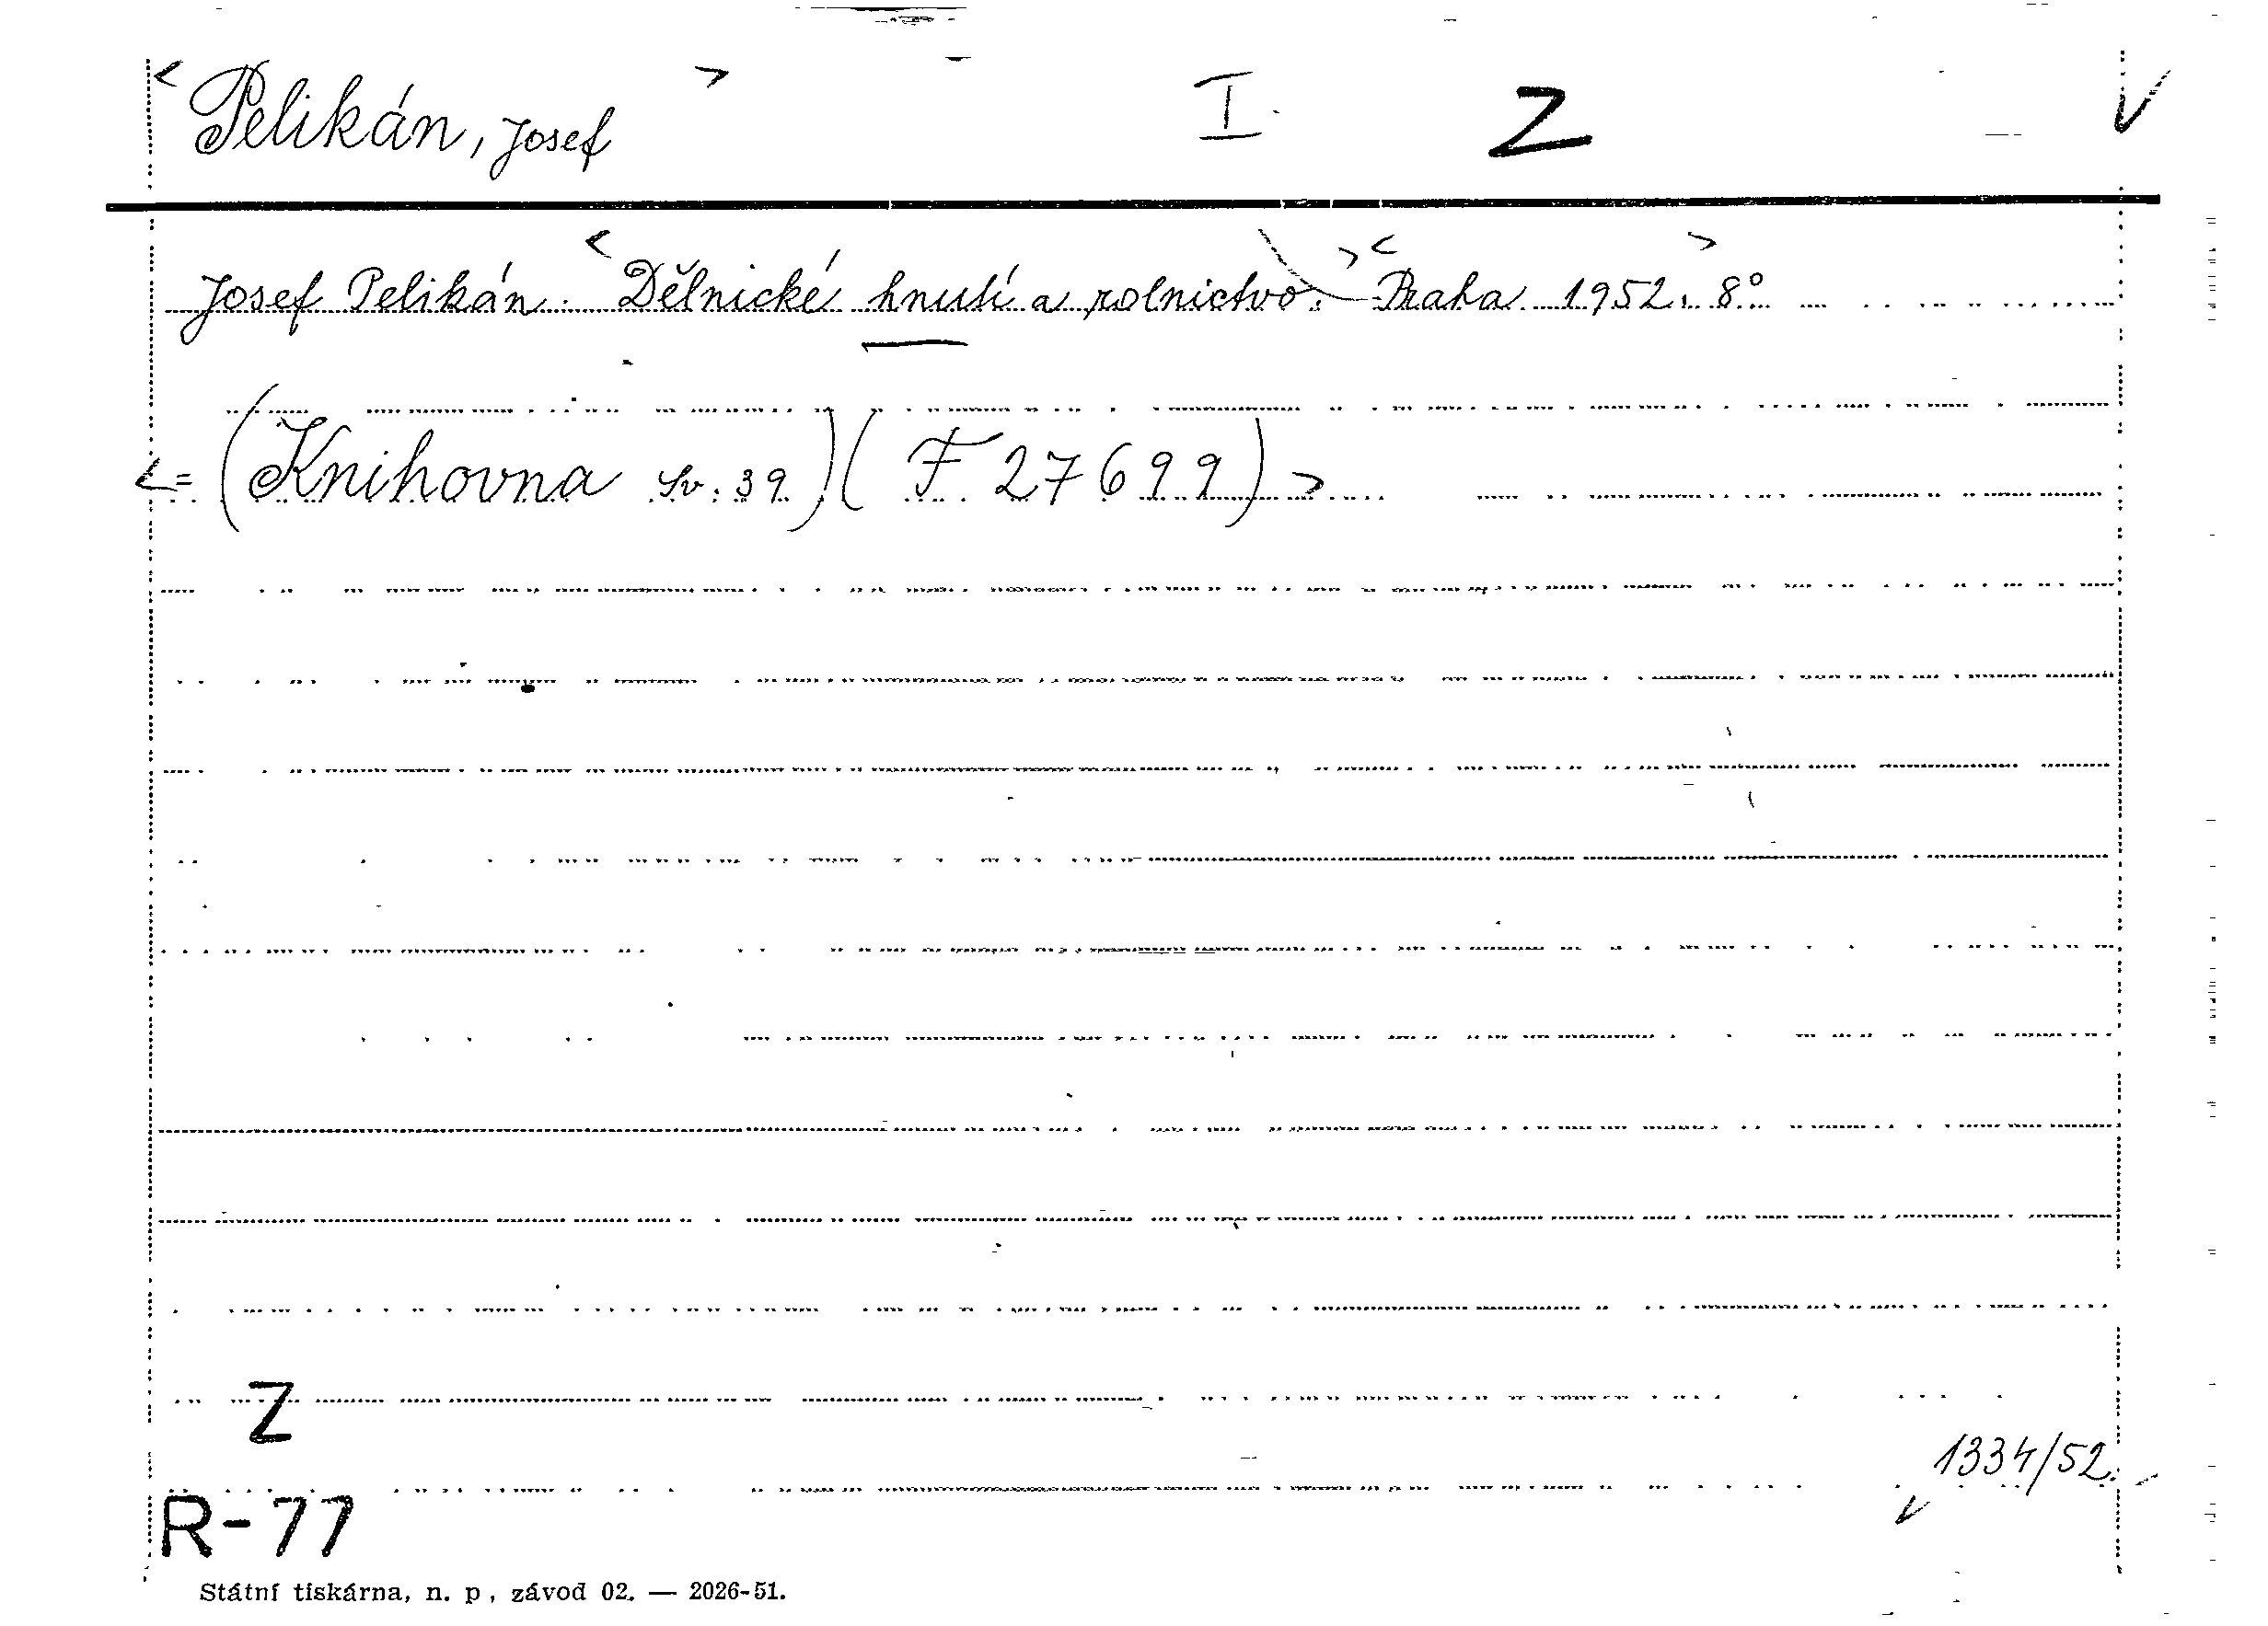 < Pelikán, Josef > I. Z V
Josef Pelikán. < Dělnické hnutí a rolnictvo. > - < Praha 1952. > 8°
<= (Knihovna sv. 39.) (F 27699) >
Z
1334/52.
R-77 V
Státní tiskárna, n. p., závod 02. — 2026-51.